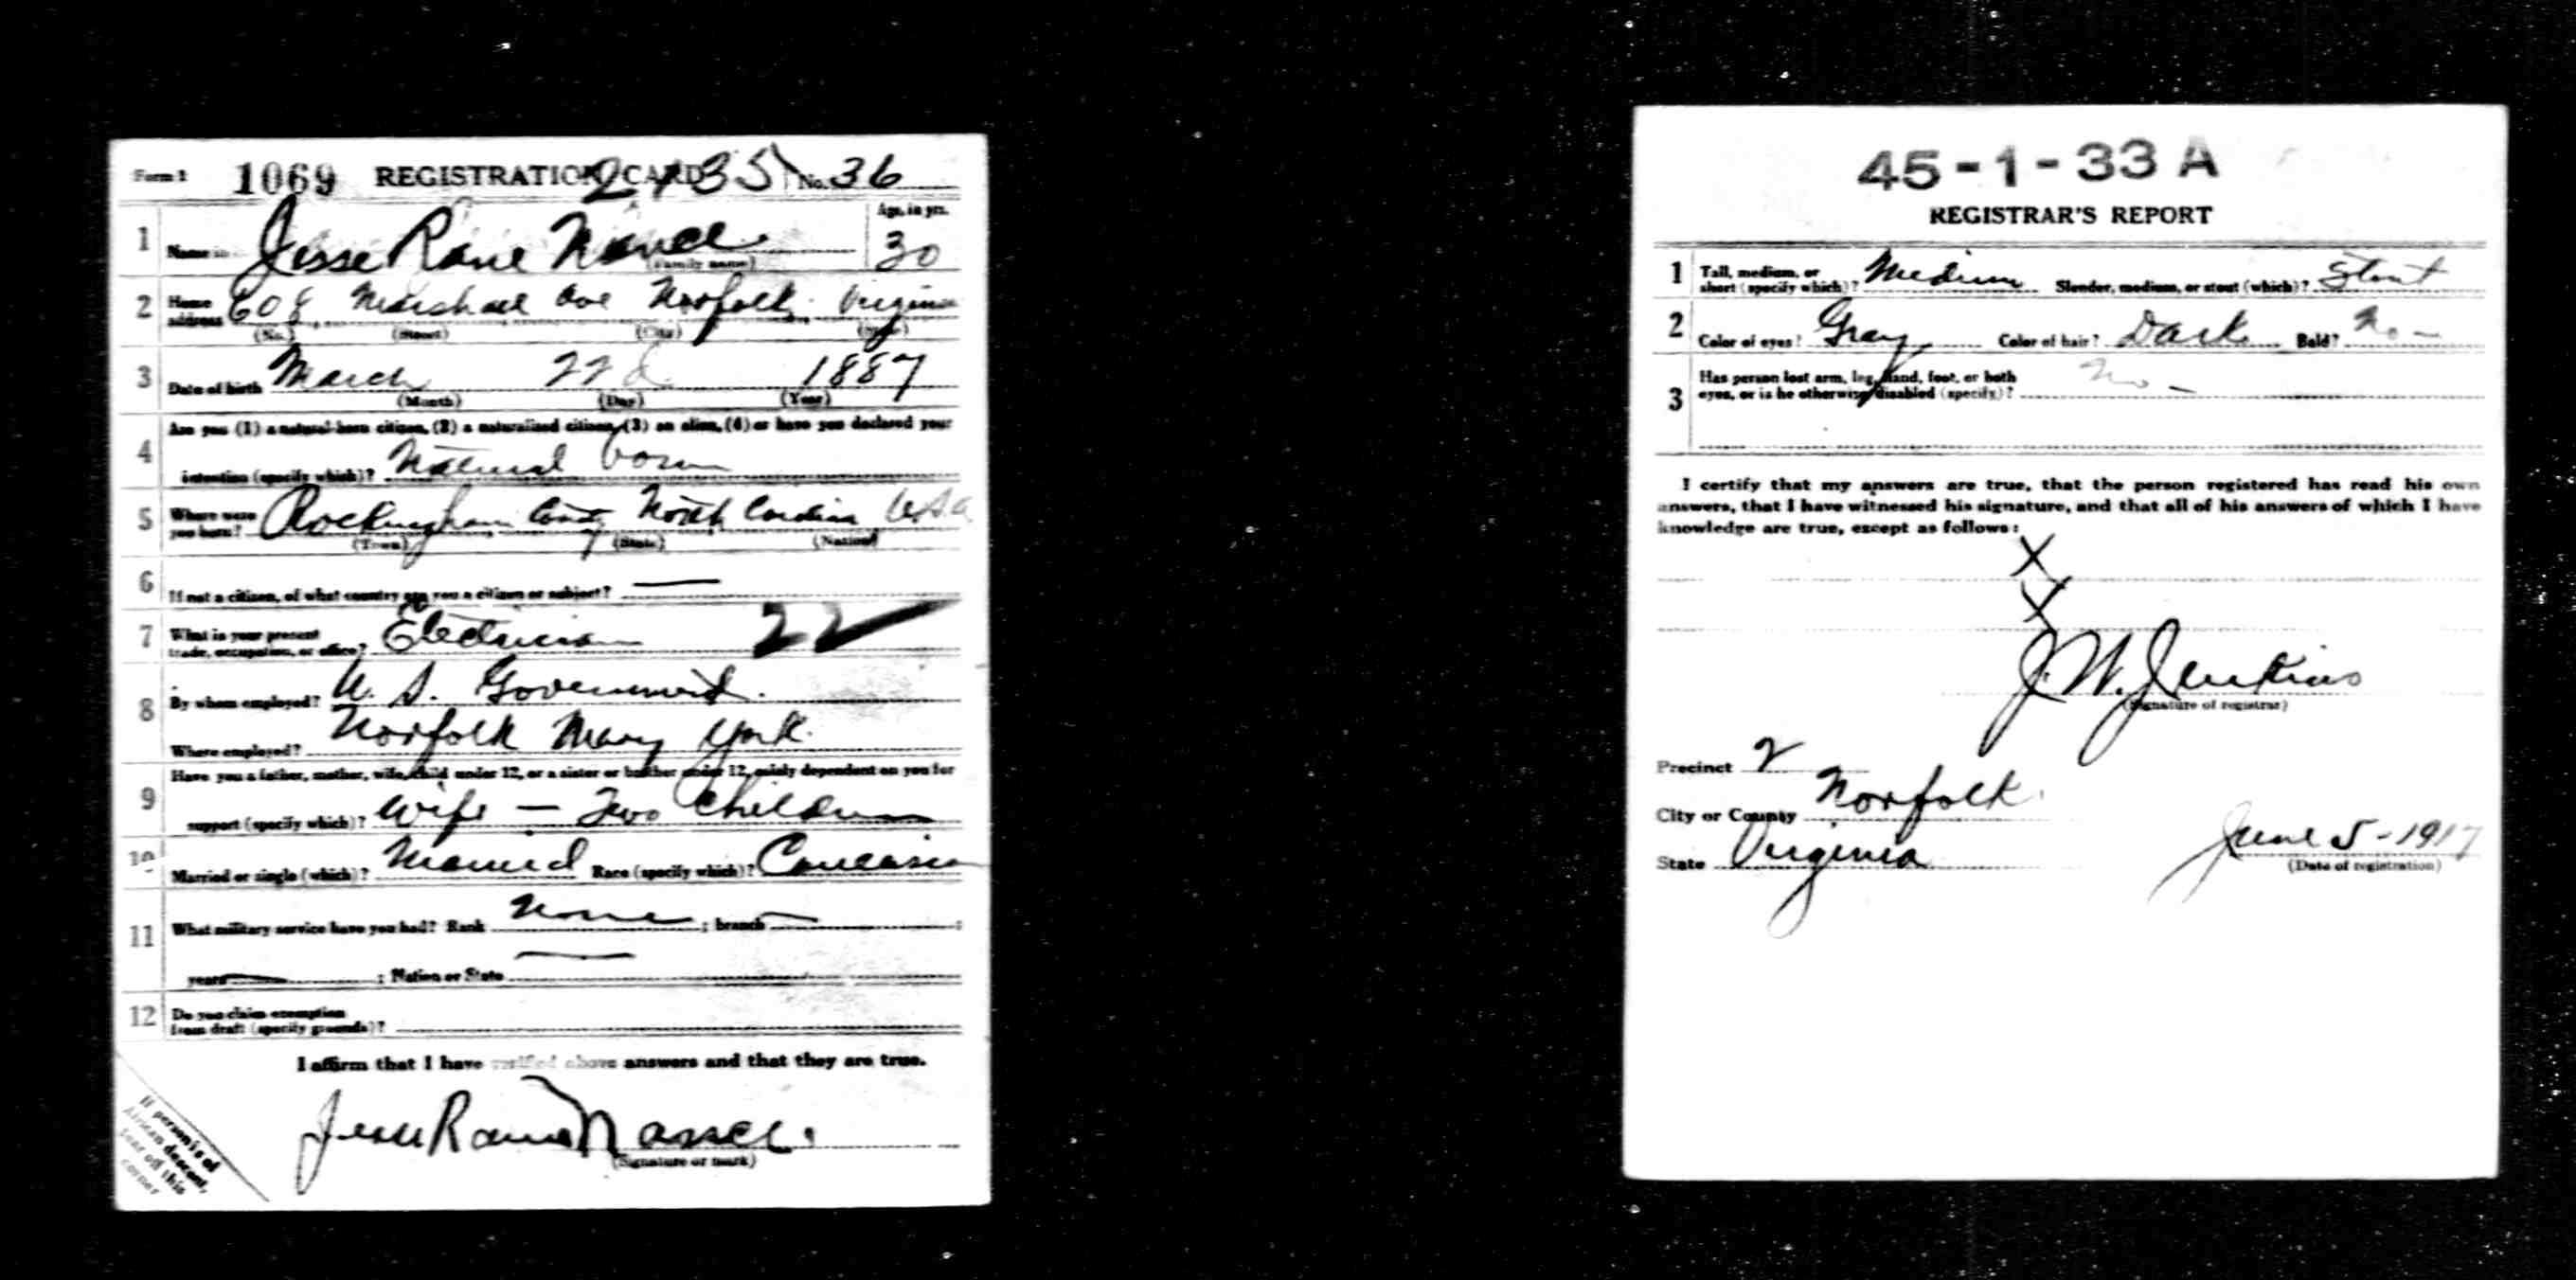 Form 1 1069 REGISTRATION CARD 2135 No. 36
1 Name in Jesse Rane Nance (Family name) Age, in yrs. 30
2 Home address 608 Marshall Ave Norfolk Virginia
(No.) (Street) (City) (State)
3 Date of birth March 22d 1887
(Month) (Day) (Year)
4 Are you (1) a natural-born citizen, (2) a naturalized citizen, (3) an alien, (4) or have you declared your
intention (specify which)? Natural born
5 Where were you born? Rockingham County North Carolina USA
(Town) (State) (Nation)
6 If not a citizen, of what country are you a citizen or subject? —
7 What is your present trade, occupation, or office? Electrician 22
8 By whom employed? U. S. Government.
Where employed? Norfolk Navy Yard.
9 Have you a father, mother, wife, child under 12, or a sister or brother under 12, solely dependent on you for
support (specify which)? Wife — Two Children
10 Married or single (which)? Married Race (specify which)? Caucasian
11 What military service have you had? Rank None ; branch — ;
years — ; Nation or State —
12 Do you claim exemption
from draft (specify grounds)?
I affirm that I have verified above answers and that they are true.
Jesse Rane Nance.
(Signature or mark)
If person is of
African descent,
tear off this
corner
45-1-33 A
REGISTRAR'S REPORT
1 Tall, medium, or
short (specify which)? Medium Slender, medium, or stout (which)? Stout
2 Color of eyes? Gray Color of hair? Dark Bald? No -
3 Has person lost arm, leg, hand, foot, or both
eyes, or is he otherwise disabled (specify)? No -
I certify that my answers are true, that the person registered has read his own
answers, that I have witnessed his signature, and that all of his answers of which I have
knowledge are true, except as follows:
X
X
J. W. Jenkins
(Signature of registrar)
Precinct 2
City or County Norfolk.
State Virginia
June 5-1917
(Date of registration)